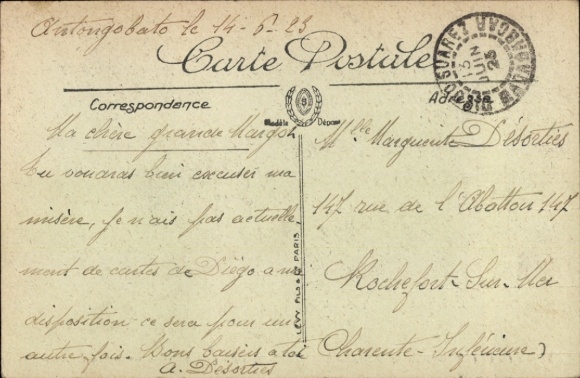 Antongobato le 14-6-23
Carte Postale
Correspondance
Adresse
Modèle Déposé
Ma chère grande Margot
Tu voudras bien excuser ma
misère, je n'ais pas actuelle
ment de cartes de Diégo a ma
disposition ce sera pour une
autre fois. Bons baisers à toi
A. Désorties
LEVY FILS & Cie PARIS
DIEGO-SUAREZ MADAGASCAR
15 JUIN 23
Mlle Marguerite Désorties
147 rue de l'Abattoir 147
Rochefort-Sur-Mer
Charente-Inférieure)